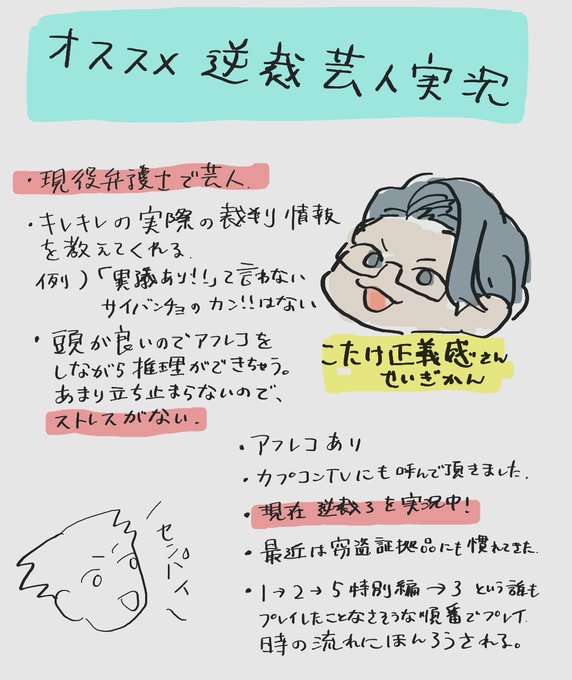 オススメ 逆裁 芸人実況
・現役弁護士で芸人.
・キレキレの実際の裁判情報
を教えてくれる.
例)「異議あり!!」って言わない
サイバンチョのカン!!はない
・頭が良いのでアフレコを
しながら推理ができちゃう。
あまり立ち止まらないので、
ストレスがない.
こたけ正義感さん
せいぎかん
・アフレコあり
・カプコンTVにも呼んで頂きました.
・現在逆裁3を実況中!
・最近は窃盗証拠品にも慣れてきた.
・1→2→5特別編→3 という誰も
プレイしたことなさそうな順番でプレイ.
時の流れにほんろうされる。
センパイ〜